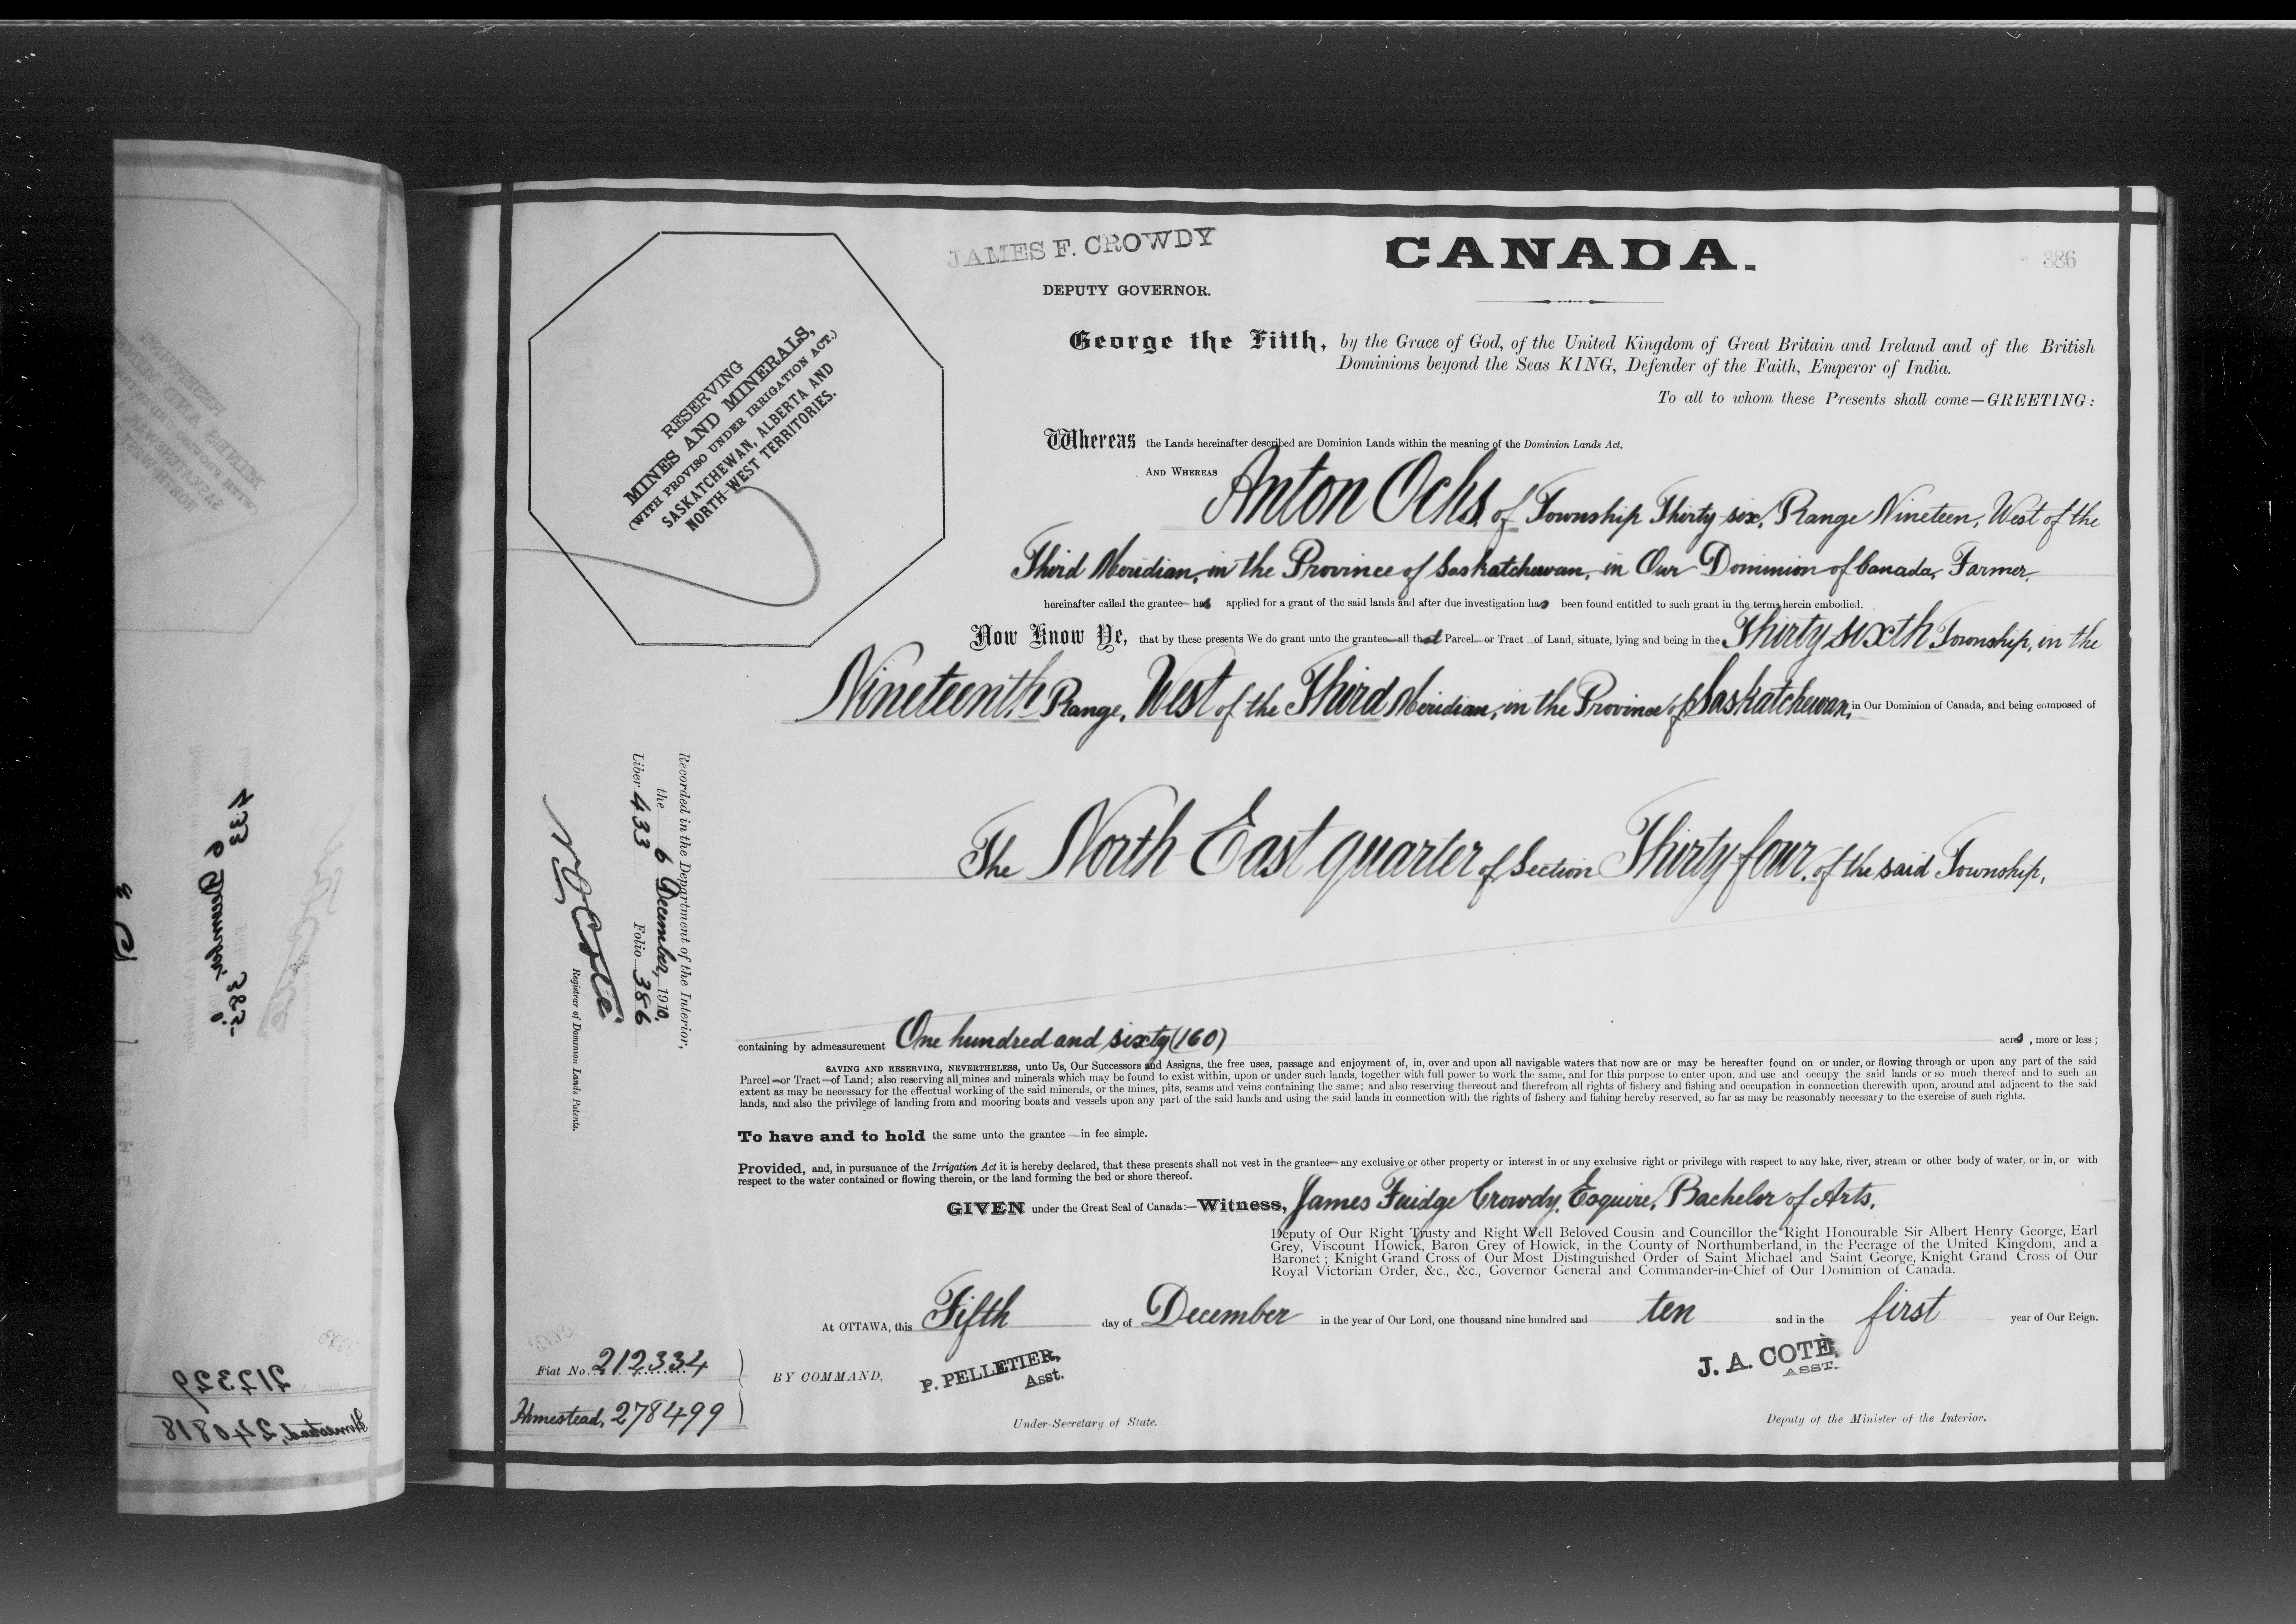 JAMES F. CROWDY
DEPUTY GOVERNOR.
CANADA.
386
RESERVING
MINES AND MINERALS,
(WITH PROVISO UNDER IRRIGATION ACT.)
SASKATCHEWAN, ALBERTA AND
NORTH-WEST TERRITORIES.
George the Fifth, by the Grace of God, of the United Kingdom of Great Britain and Ireland and of the British
Dominions beyond the Seas KING, Defender of the Faith, Emperor of India.
To all to whom these Presents shall come—GREETING:
Whereas the Lands hereinafter described are Dominion Lands within the meaning of the Dominion Lands Act.
AND WHEREAS Anton Ochs, of Township Thirty-six, Range Nineteen, West of the
Third Meridian, in the Province of Saskatchewan, in Our Dominion of Canada, Farmer,
hereinafter called the grantee has applied for a grant of the said lands and after due investigation has been found entitled to such grant in the terms herein embodied.
Now Know Ye, that by these presents We do grant unto the grantee all that Parcel or Tract of Land, situate, lying and being in the Thirty sixth Township, in the
Nineteenth Range, West of the Third Meridian, in the Province of Saskatchewan, in Our Dominion of Canada, and being composed of
The North East quarter of Section Thirty four, of the said Township,
containing by admeasurement One hundred and sixty (160) acres, more or less;
SAVING AND RESERVING, NEVERTHELESS, unto Us, Our Successors and Assigns, the free uses, passage and enjoyment of, in, over and upon all navigable waters that now are or may be hereafter found on or under, or flowing through or upon any part of the said
Parcel or Tract of Land; also reserving all mines and minerals which may be found to exist within, upon or under such lands, together with full power to work the same, and for this purpose to enter upon, and use and occupy the said lands or so much thereof and to such an
extent as may be necessary for the effectual working of the said minerals, or the mines, pits, seams and veins containing the same; and also reserving thereout and therefrom all rights of fishery and fishing and occupation in connection therewith upon, around and adjacent to the said
lands, and also the privilege of landing from and mooring boats and vessels upon any part of the said lands and using the said lands in connection with the rights of fishery and fishing hereby reserved, so far as may be reasonably necessary to the exercise of such rights.
To have and to hold the same unto the grantee in fee simple.
Provided, and, in pursuance of the Irrigation Act it is hereby declared, that these presents shall not vest in the grantee any exclusive or other property or interest in or any exclusive right or privilege with respect to any lake, river, stream or other body of water, or in, or with
respect to the water contained or flowing therein, or the land forming the bed or shore thereof.
GIVEN under the Great Seal of Canada:—Witness, James Fuidge Crowdy, Esquire, Bachelor of Arts,
Deputy of Our Right Trusty and Right Well Beloved Cousin and Councillor the Right Honourable Sir Albert Henry George, Earl
Grey, Viscount Howick, Baron Grey of Howick, in the County of Northumberland, in the Peerage of the United Kingdom, and a
Baronet; Knight Grand Cross of Our Most Distinguished Order of Saint Michael and Saint George, Knight Grand Cross of Our
Royal Victorian Order, &c., &c., Governor General and Commander-in-Chief of Our Dominion of Canada.
At OTTAWA, this Fifth day of December in the year of Our Lord, one thousand nine hundred and ten and in the first year of Our Reign.
BY COMMAND,
P. PELLETIER,
Asst.
Under-Secretary of State.
J. A. COTÉ,
ASST.
Deputy of the Minister of the Interior.
Recorded in the Department of the Interior,
the 6 December, 1910,
Liber 433 Folio 386
N O Coté
Registrar of Dominion Lands Patents.
Fiat No. 212334
Homestead, 278499
433
383
212329
Homestead, 240818